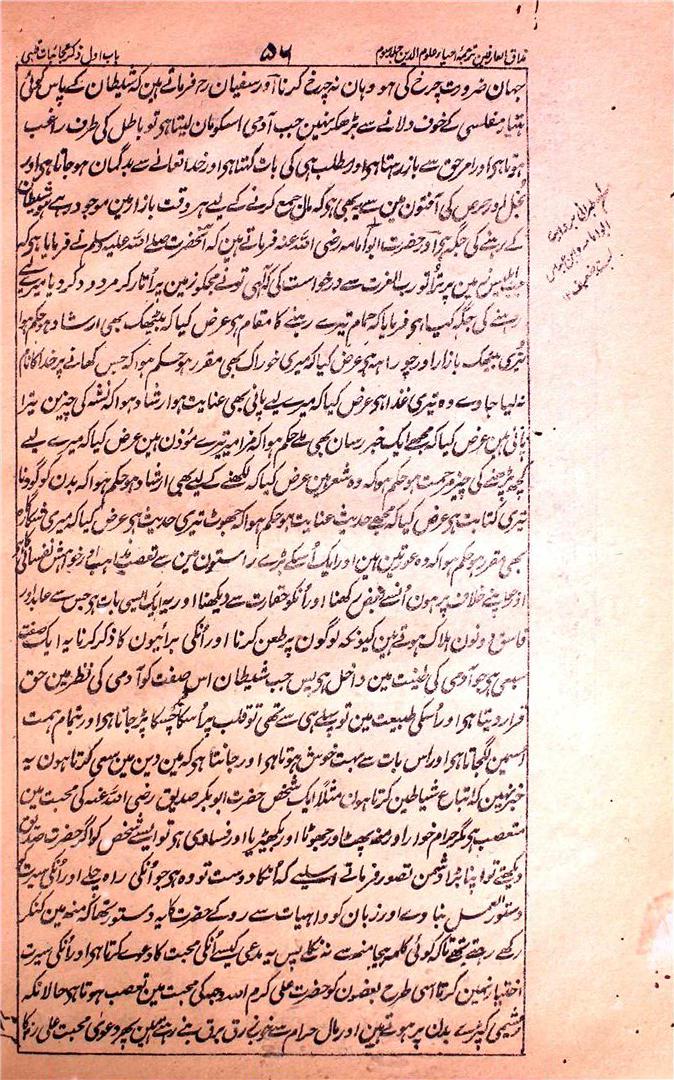 مذاق العارفین ترجمہ احیاء علوم الدین جلد سوم ۵۶ باب اول ذکر عجائبات قلبی
جہان ضرورت چرخ کی ہو وہان نہ چرخ کرنا اور سفیان رح فرماتے ہین کہ شیطان کے پاس کوئی
ہتیار مفلسی کے خوف دلانے سے بڑھکر نہین جب آدمی اسکو مان لیتا ہی تو باطل کی طرف راغب
ہوتا ہی اور امر حق سے باز رہتا ہی اور مطلب ہی کی بات کہتا ہی اور خدا تعالے سے بدگمان ہو جاتا ہی اور
بخل اور حرص کی آفتون مین سے یہ بھی ہی کہ مال جمع کرنے کے لیے ہر وقت بازار مین موجود رہے جو شیطان
کے رہنے کی جگہ ہی اور حضرت ابو امامہ رضی اللہ عنہ فرماتے ہین کہ آنحضرت صلے اللہ علیہ وسلم نے فرمایا ہی کہ
جب ابلیس زمین پر اُترا تو رب العزت سے درخواست کی کہ الٰہی تو نے مجکو زمین پر اُتار کر مردود کر دیا میرے لیے
رہنے کی جگہ کیا ہی فرمایا کہ حمام تیرے رہنے کا مقام ہی عرض کیا کہ بیٹھک بھی ارشاد ہو حکم ہوا
تیری بیٹھک بازار اور چوراہہ ہی عرض کیا کہ میری خوراک بھی مقرر ہو حکم ہوا کہ جس کھانے پر خدا کا نام
نہ لیا جاوے وہ تیری غذا ہی عرض کیا کہ میرے لیے پانی بھی عنایت ہو ارشاد ہوا کہ نشہ کی چیزین تیرا
پانی ہین عرض کیا کہ مجھے ایک خبر رسان بھی ملے حکم ہوا کہ مزامیر تیرے مؤذن ہین عرض کیا کہ میرے لیے
کچھ پڑھنے کی چیز مرحمت ہو حکم ہوا کہ وہ شعر ہین عرض کیا کہ لکھنے کے لیے بھی ارشاد ہو حکم ہوا کہ بدن کو گودنا
تیری کتابت ہی عرض کیا کہ مجھے حدیث عنایت ہو حکم ہوا کہ جھوٹ تیری حدیث ہی عرض کیا کہ میری شکارگاہ
بھی مقرر ہو حکم ہوا کہ وہ عورتین ہین اور ایک اُسکے بڑے راستون مین سے تعصب مذاہب اور خواہش نفسانی کا
اور جو اپنے خلاف پر ہون اُنسے بغض رکھنا اور اُنکو حقارت سے دیکھنا اور یہ ایک ایسی بات ہی جس سے عابد اور
فاسق دونون ہلاک ہوتے ہین کیونکہ لوگون پر طعن کرنا اور اُنکی برائیون کا ذکر کرنا یہ ایک صفت
سبعی ہی جو آدمی کی طینت مین داخل ہی پس جب شیطان اس صفت کو آدمی کی نظر مین حق
قرار دیتا ہی اور اُسکی طبیعت مین تو پہلے ہی سے تھی تو قلب پر اُسکا چسکا پڑ جاتا ہی اور تمام ہمت
اسمین لگجاتا ہی اور اس بات سے بہت خوش ہوتا ہی اور جانتا ہی کہ مین دین مین سعی کرتا ہون یہ
خبر نہین کہ اتباع شیاطین کرتا ہون مثلاً ایک شخص حضرت ابوبکر صدیق رضی اللہ عنہ کی محبت مین
متعصب ہی مگر حرام خوار اور منھ پھٹ اور جھوٹا اور بکھیڑیا اور فسادی ہی تو ایسے شخص کو اگر حضرت صدیق
دیکھتے تو اپنا بڑا دشمن تصور فرماتے اسلیے کہ اُنکا دوست تو وہ ہی جو اُنکی راہ چلے اور اُنکی سیرت کو
دستور العمل بناوے اور زبان کو واہیات سے روکے حضرت کا یہ دستور تھا کہ منھ مین کنکر
رکھے رہتے تھے تاکہ کوئی کلمہ بیجا منھ سے نہ نکلے پس یہ مدعی کیسے اُنکی محبت کا دعوے کرتا ہی اور اُنکی سیرت
اختیار نہین کرتا اسی طرح بعضون کو حضرت علی کرم اللہ وجہہ کی محبت مین تعصب ہوتا ہی حالانکہ
ریشمی کپڑے بدن پر ہوتے ہین اور مال حرام سے خوب زرق برق بنے رہتے ہین پھر دعوی محبت علی رض کا